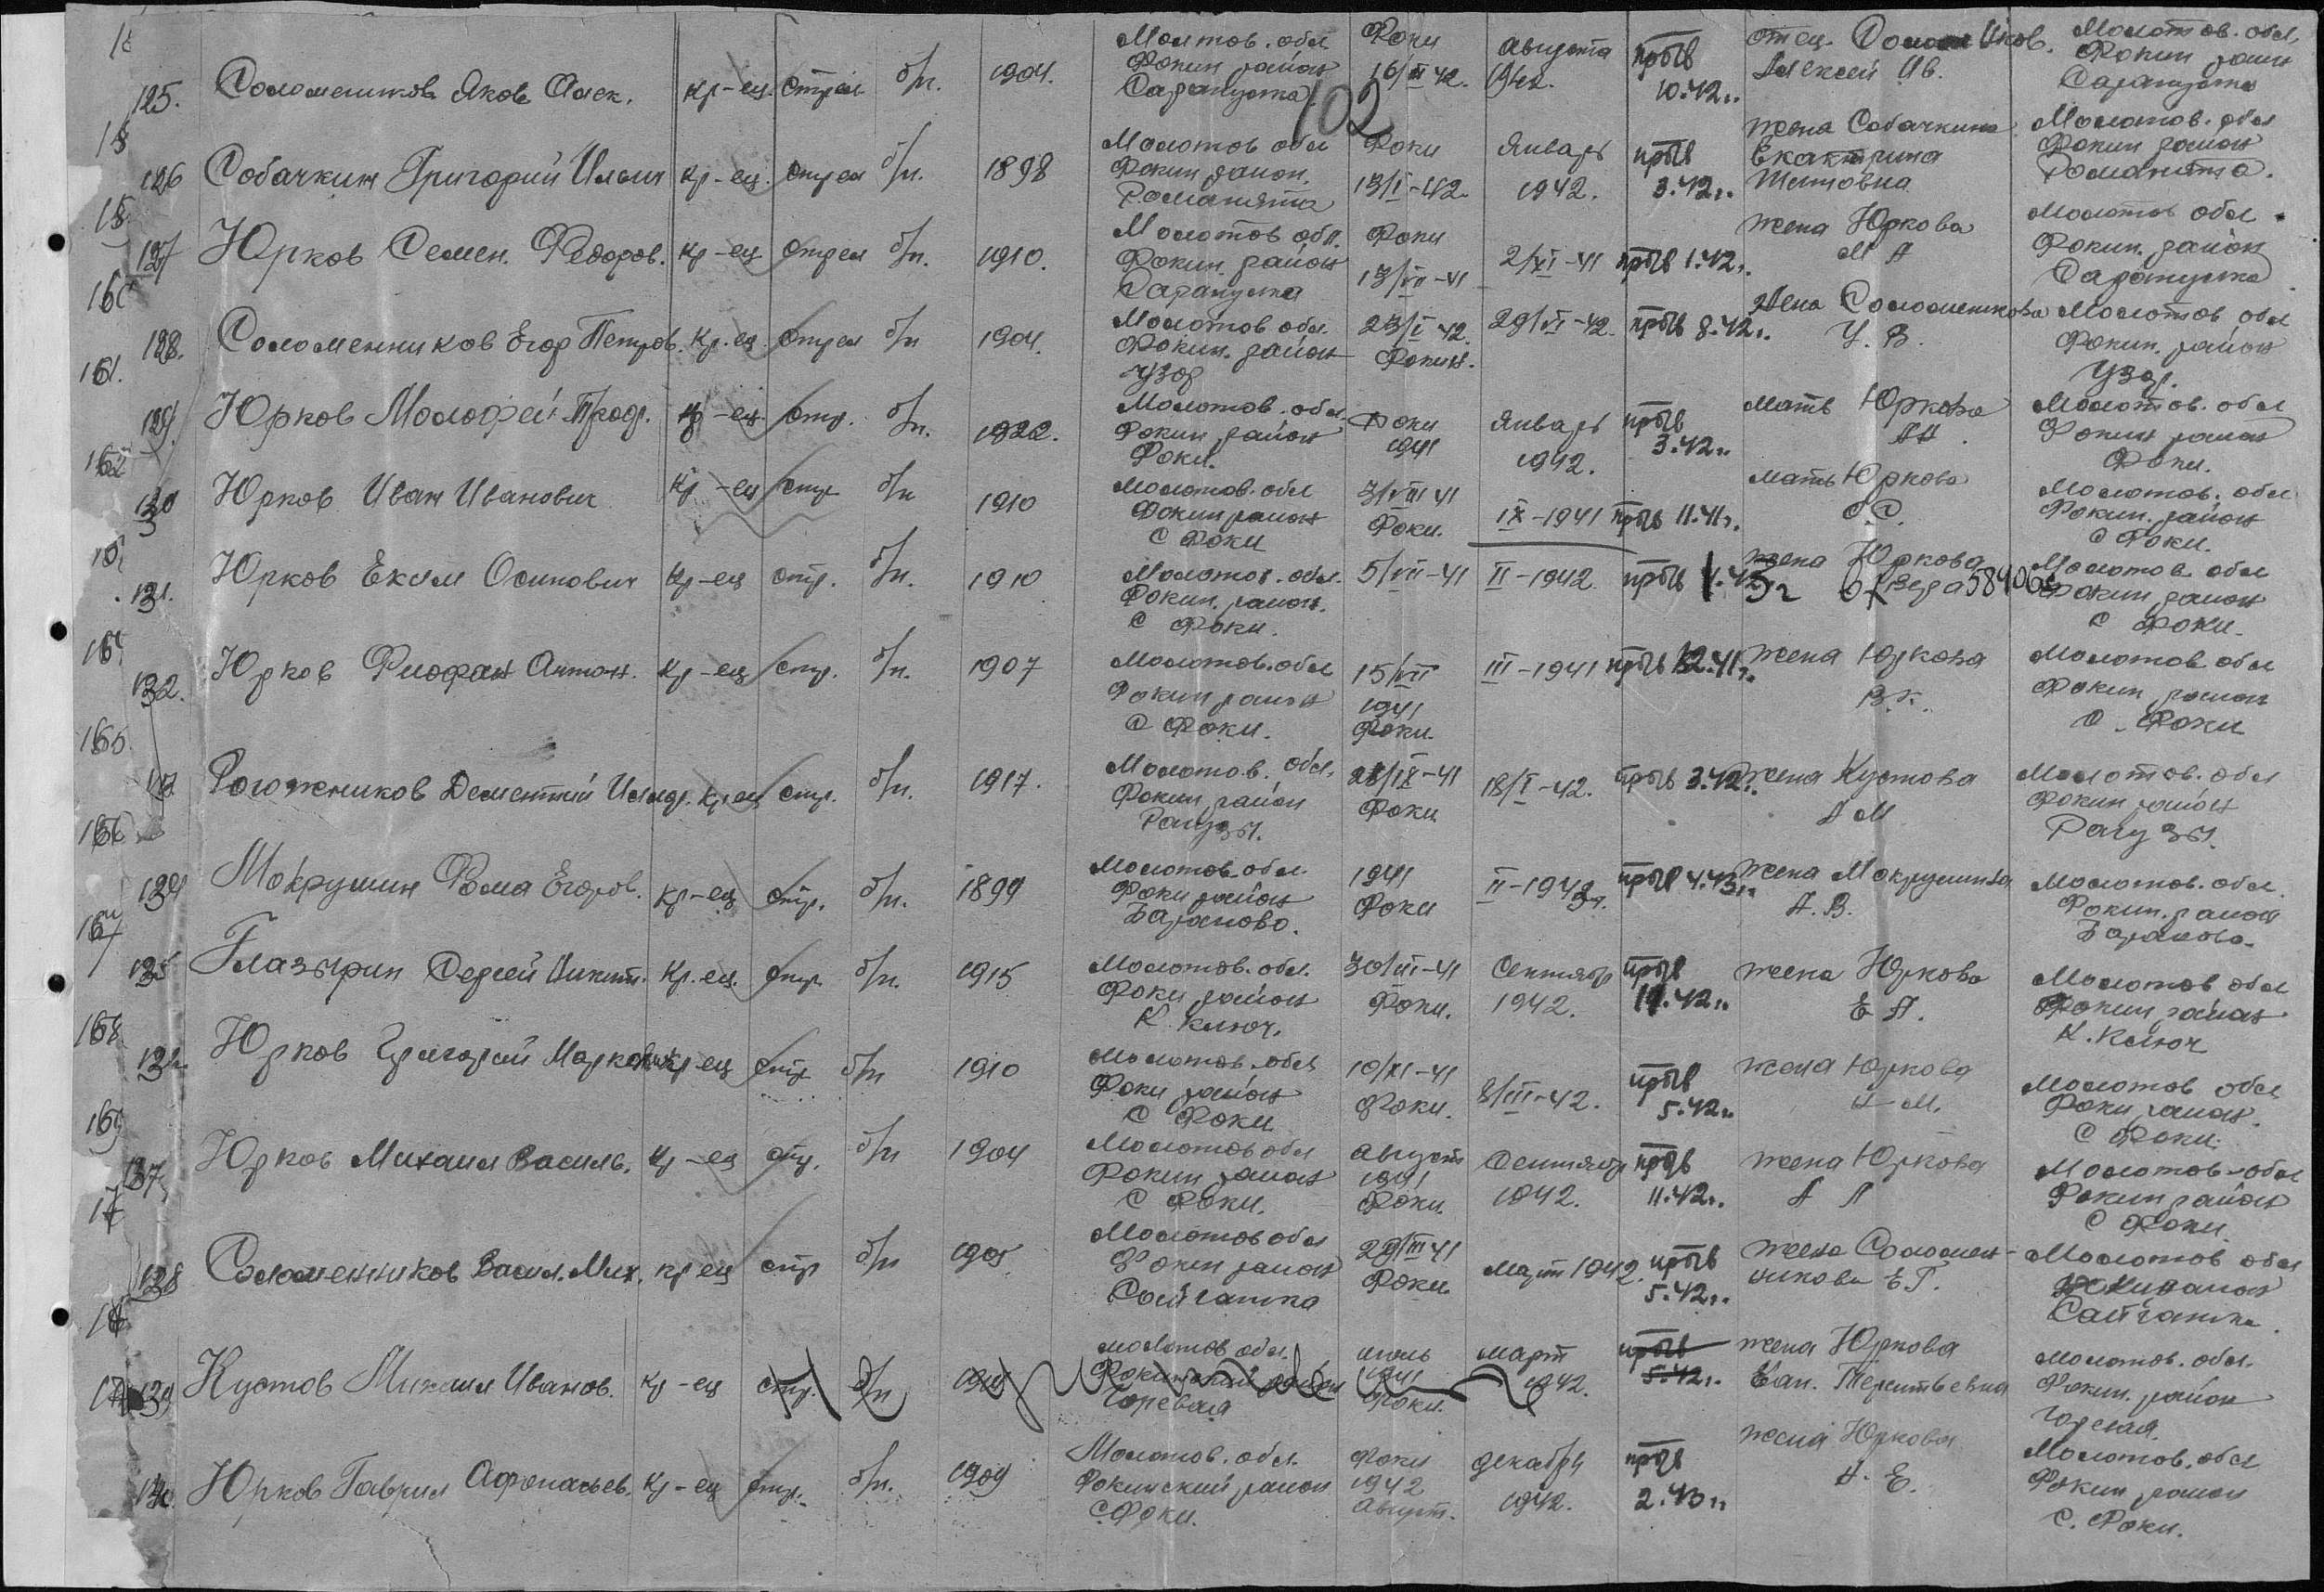 125. Соломенников Яков Алек. кр-ец. стрел б/п. 1904. Молотов. обл Фокин район Сарапулка Фоки 16/III 42. августа 1942. пр б/в 10.42г. отец. Соломенников. Алексей Ив. Молотов. обл, Фокин район Сарапулка
102
126 Собачкин Григорий Ильич кр-ец. стрел б/п. 1898 Молотов обл Фокин район. Романята Фоки 13/I-42. Январь 1942. пр б/в 3.42г. жена Собачкина Екатерина Титовна Молотов. обл Фокин район Романята.
127 Юрков Семен. Федоров. кр-ец стрел б/п. 1910. Молотов обл. Фокин. район Сарапулка Фоки 13/VII-41 2/XI-41 пр б/в 1.42г. жена Юркова М А Молотов обл. Фокин. район Сарапулка
128. Соломенников Егор Петров. кр.ец. стрел б/п 1904. Молотов обл. Фокин. район Узор 23/I 42. Фокин. 29/VI-42. пр б/в 8.42г. жена Соломенникова У. В. Молотов обл Фокин. район Узор.
161.
129. Юрков Молофей Прод. кр-ец. стр. б/п. 1922. Молотов. обл Фокин район Фоки. Фоки 1941 Январь 1942. пр б/в 3.42г. мать Юркова А А. Молотов. обл Фокин район Фоки.
162
130 Юрков Иван Иванович кр-ец стр б/п 1910 Молотов. обл Фокин район С Фоки 3/VIII 41 Фоки. IX-1941 пр б/в 11.41г. мать Юркова О.С. Молотов. обл Фокин. район С Фоки.
131. Юрков Еким Осипович кр-ец стр. б/п. 1910 Молотов. обл. Фокин. район. С Фоки. 5/VII-41 II-1942 пр б/в 4.43г жена Юркова Вера 58406 Молотов обл Фокин район С Фоки.
164
132. Юрков Феофан Антон. кр-ец стр. б/п. 1907 Молотов. обл Фокин район С Фоки. 15/VII 1941 Фоки. III-1941 пр б/в 12.41г. жена Юркова В.Г. Молотов обл Фокин район С. Фоки
165.
133 Рогожников Дементий кр ец стр. б/п. 1917. Молотов. обл. Фокин район Рагузы. 28/IX-41 Фоки 18/I-42. пр б/в 3.42г. жена Кустова А М Молотов. обл Фокин район Рагузы.
166
134 Мокрушин Фома Егоров. кр-ец стр. б/п. 1899 Молотов обл. Фоки район Бараново. 1941 Фоки II-1943г. пр б/в 4.43г. жена Мокрушина А. В. Молотов. обл. Фокин. район Бараново.
167
135 Глазырин Сергей Никит. кр. ец. стр. б/п. 1915 Молотов. обл. Фоки район К. Ключ. 30/III-41 Фоки. Сентябрь 1942. пр б/в 11.42г. жена Юркова Е А. Молотов обл Фокин район К. Ключ
168
136 Юрков Григорий Маркович кр-ец стр б/п 1910 Молотов обл Фоки район С Фоки 10/XI-41 Фоки. 8/III-42. пр б/в 5.42г. жена Юркова А М. Молотов обл Фоки район. С Фоки.
169
137. Юрков Михаил Василь. кр-ец стр. б/п 1904 Молотов обл Фокин район С Фоки. август 1941 Фоки. Сентябрь 1942. пр б/в 11.42г. жена Юркова А Л Молотов обл Фокин район С Фоки.
138 Соломенников Васил. Мих. кр ец стр б/п 1905 Молотов обл Фокин район Сайгатка 29/III 41 Фоки Март 1942. пр б/в 5.42г. жена Соломенникова Е Г. Молотов обл Фокин район Сайгатка.
139 Кустов Михаил Иванов. кр-ец стр. б/п Молотов обл. Фокинский район Горевая июль 1941 Фоки. март 1942. пр б/в 5.42г. жена Юркова Ган. Терентьевна Молотов. обл. Фокин. район Горевая.
140. Юрков Гаврил Афонасьев. кр-ец стр. б/п. 1909 Молотов. обл. Фокинский район С. Фоки. Фоки 1942 Август. декабря 1942. пр б/в 2.43г. жена Юркова А. Е. Молотов. обл Фокин район С. Фоки.